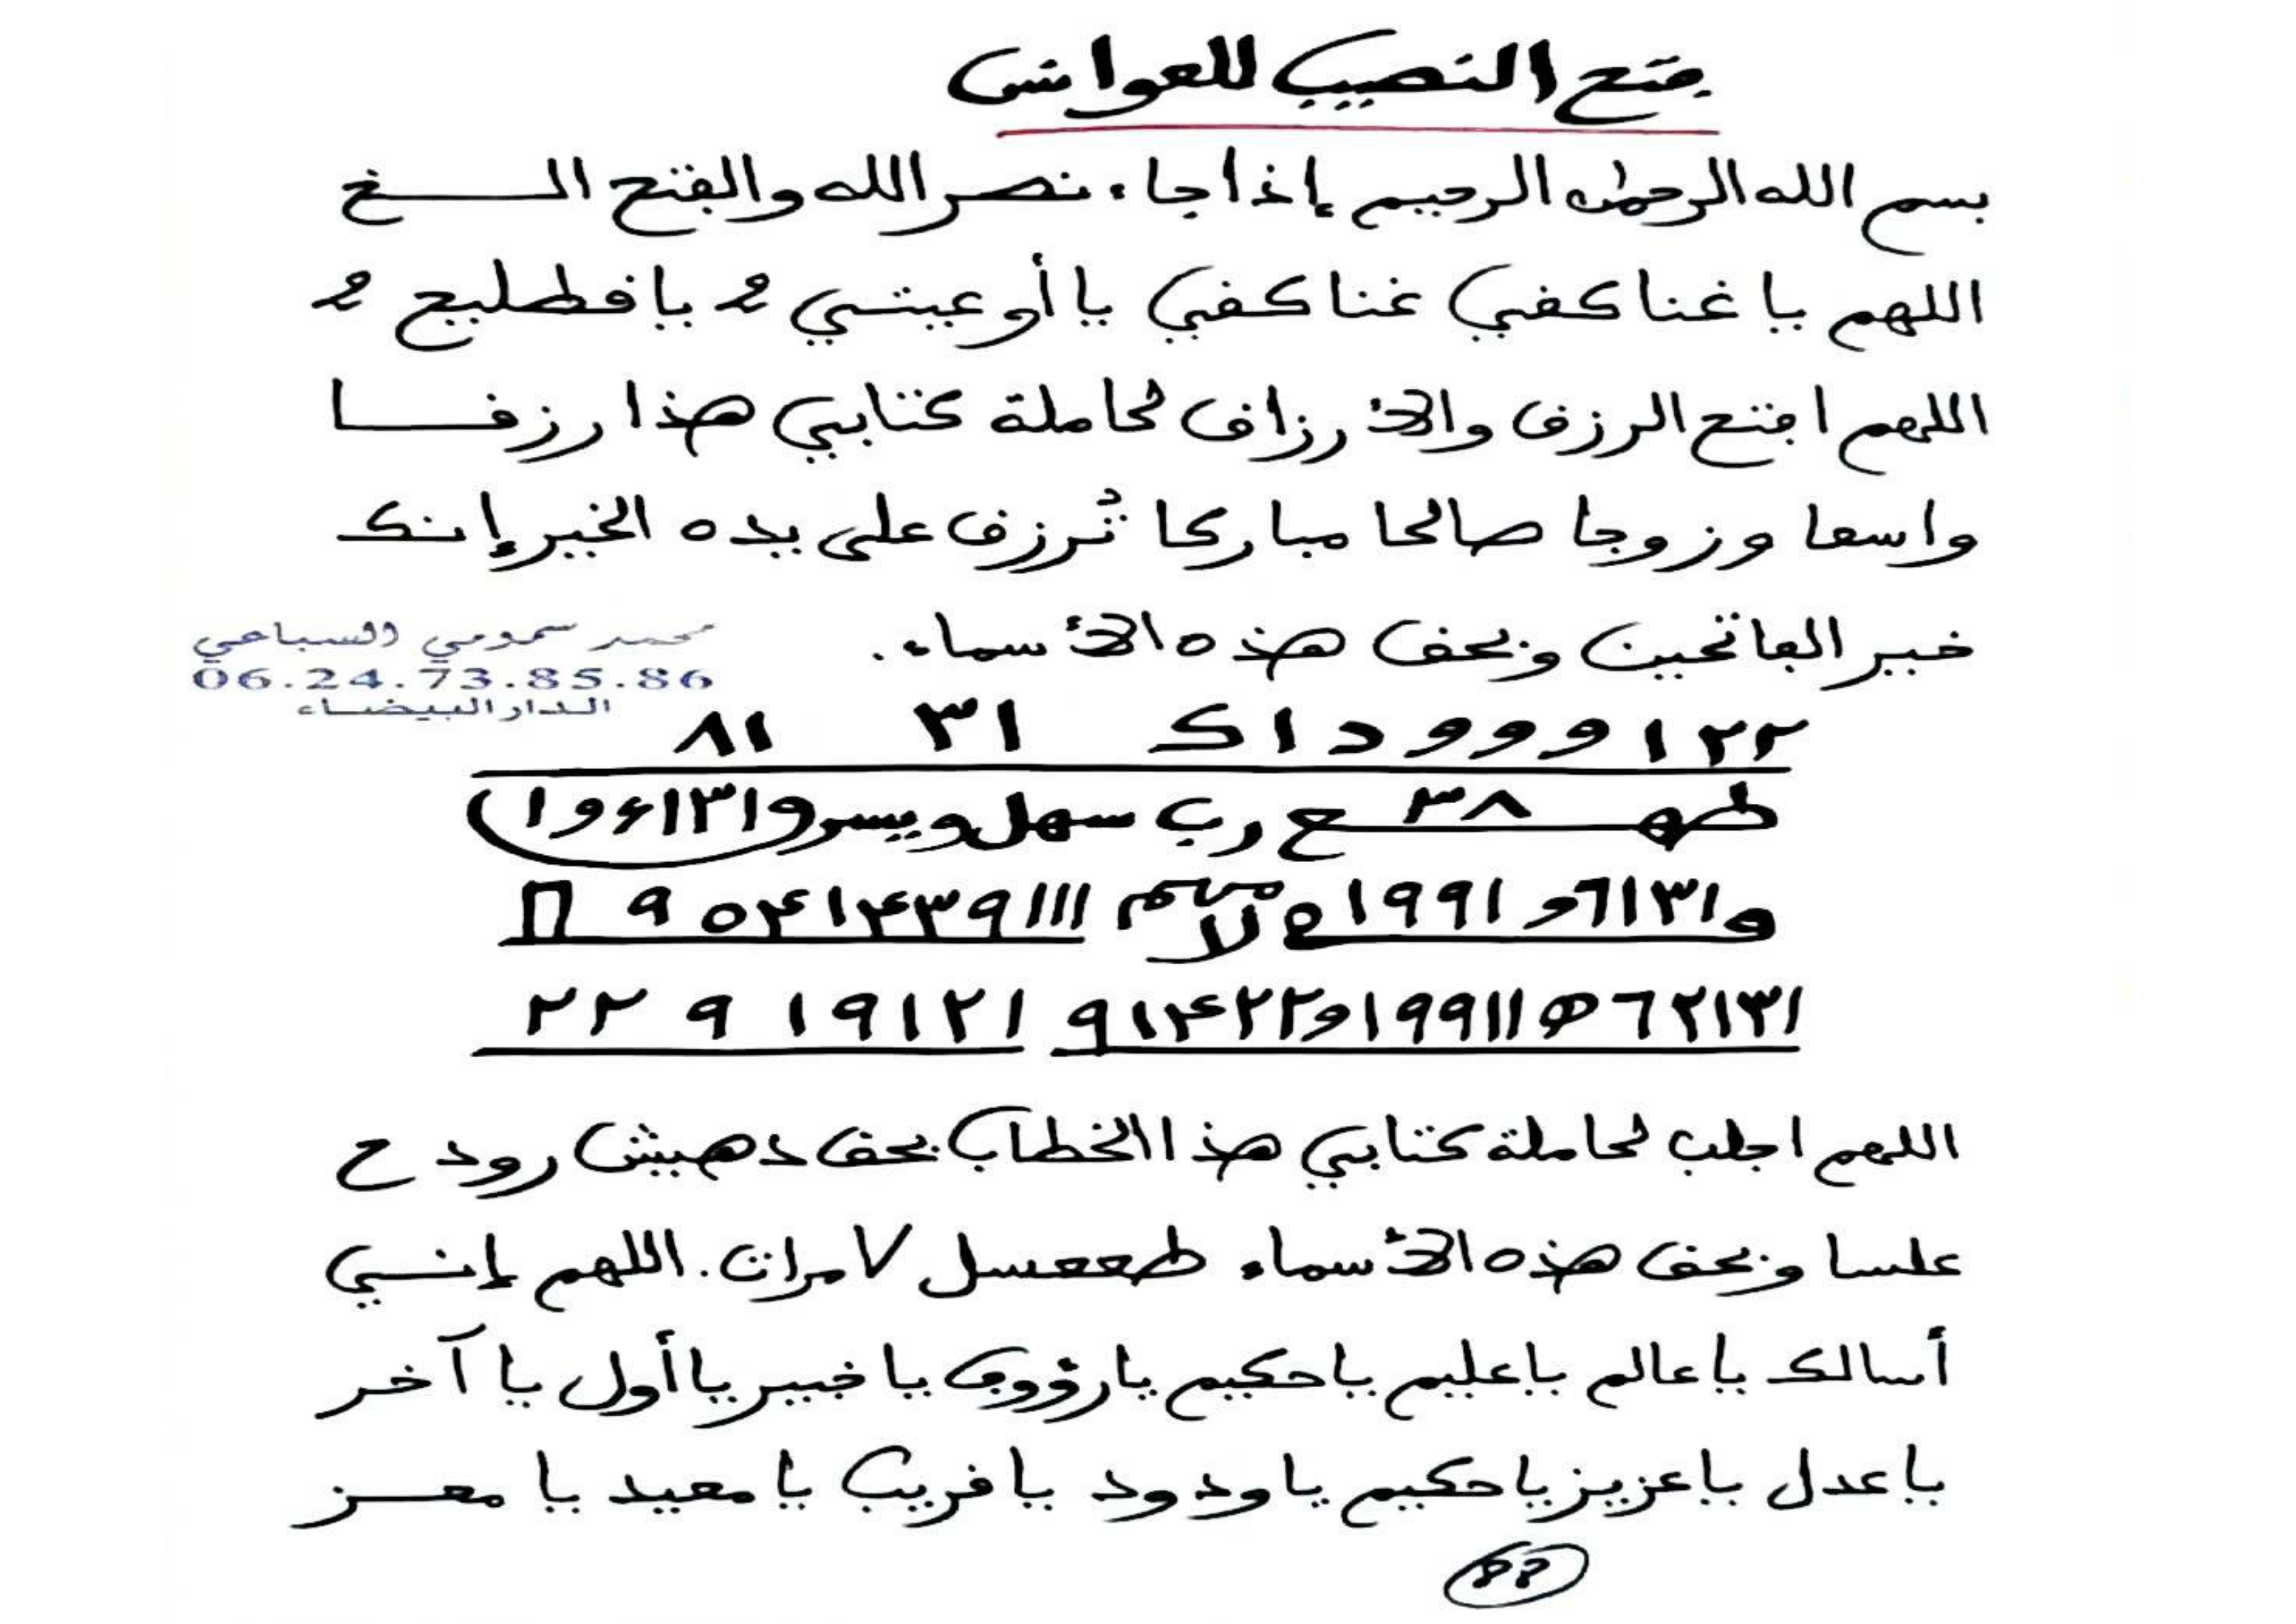 فتح النصيب للعوانس
بسم الله الرحمن الرحيم إذا جاء نصر الله والفتح الخ
اللهم يا غناكفي غناكفي يا أوعيتي ٢ يا قطليع ٢
اللهم افتح الرزق والأرزاق لحاملة كتابي هذا رزقا
واسعا وزوجا صالحا مباركا تُرزق على يده الخير إنك
خير الفاتحين وبحق هذه الأسماء.
محمد سمومي السباعي
06.24.73.85.86
الدار البيضاء
٢٢ ا و و و د ا ك ٣١ ٨١
طهـ ٣٨ ع رب سهل ويسر
اللهم اجلب لحاملة كتابي هذا الخطاب بحق دهيش رود ح
علسا وبحق هذه الأسماء طععسل ٧ مرات. اللهم إني
أسالك يا عالم يا عليم يا حكيم يا رؤوف يا خبير يا أول يا آخر
يا عدل يا عزيز يا حكيم يا ودود يا قريب يا معيد يا معز